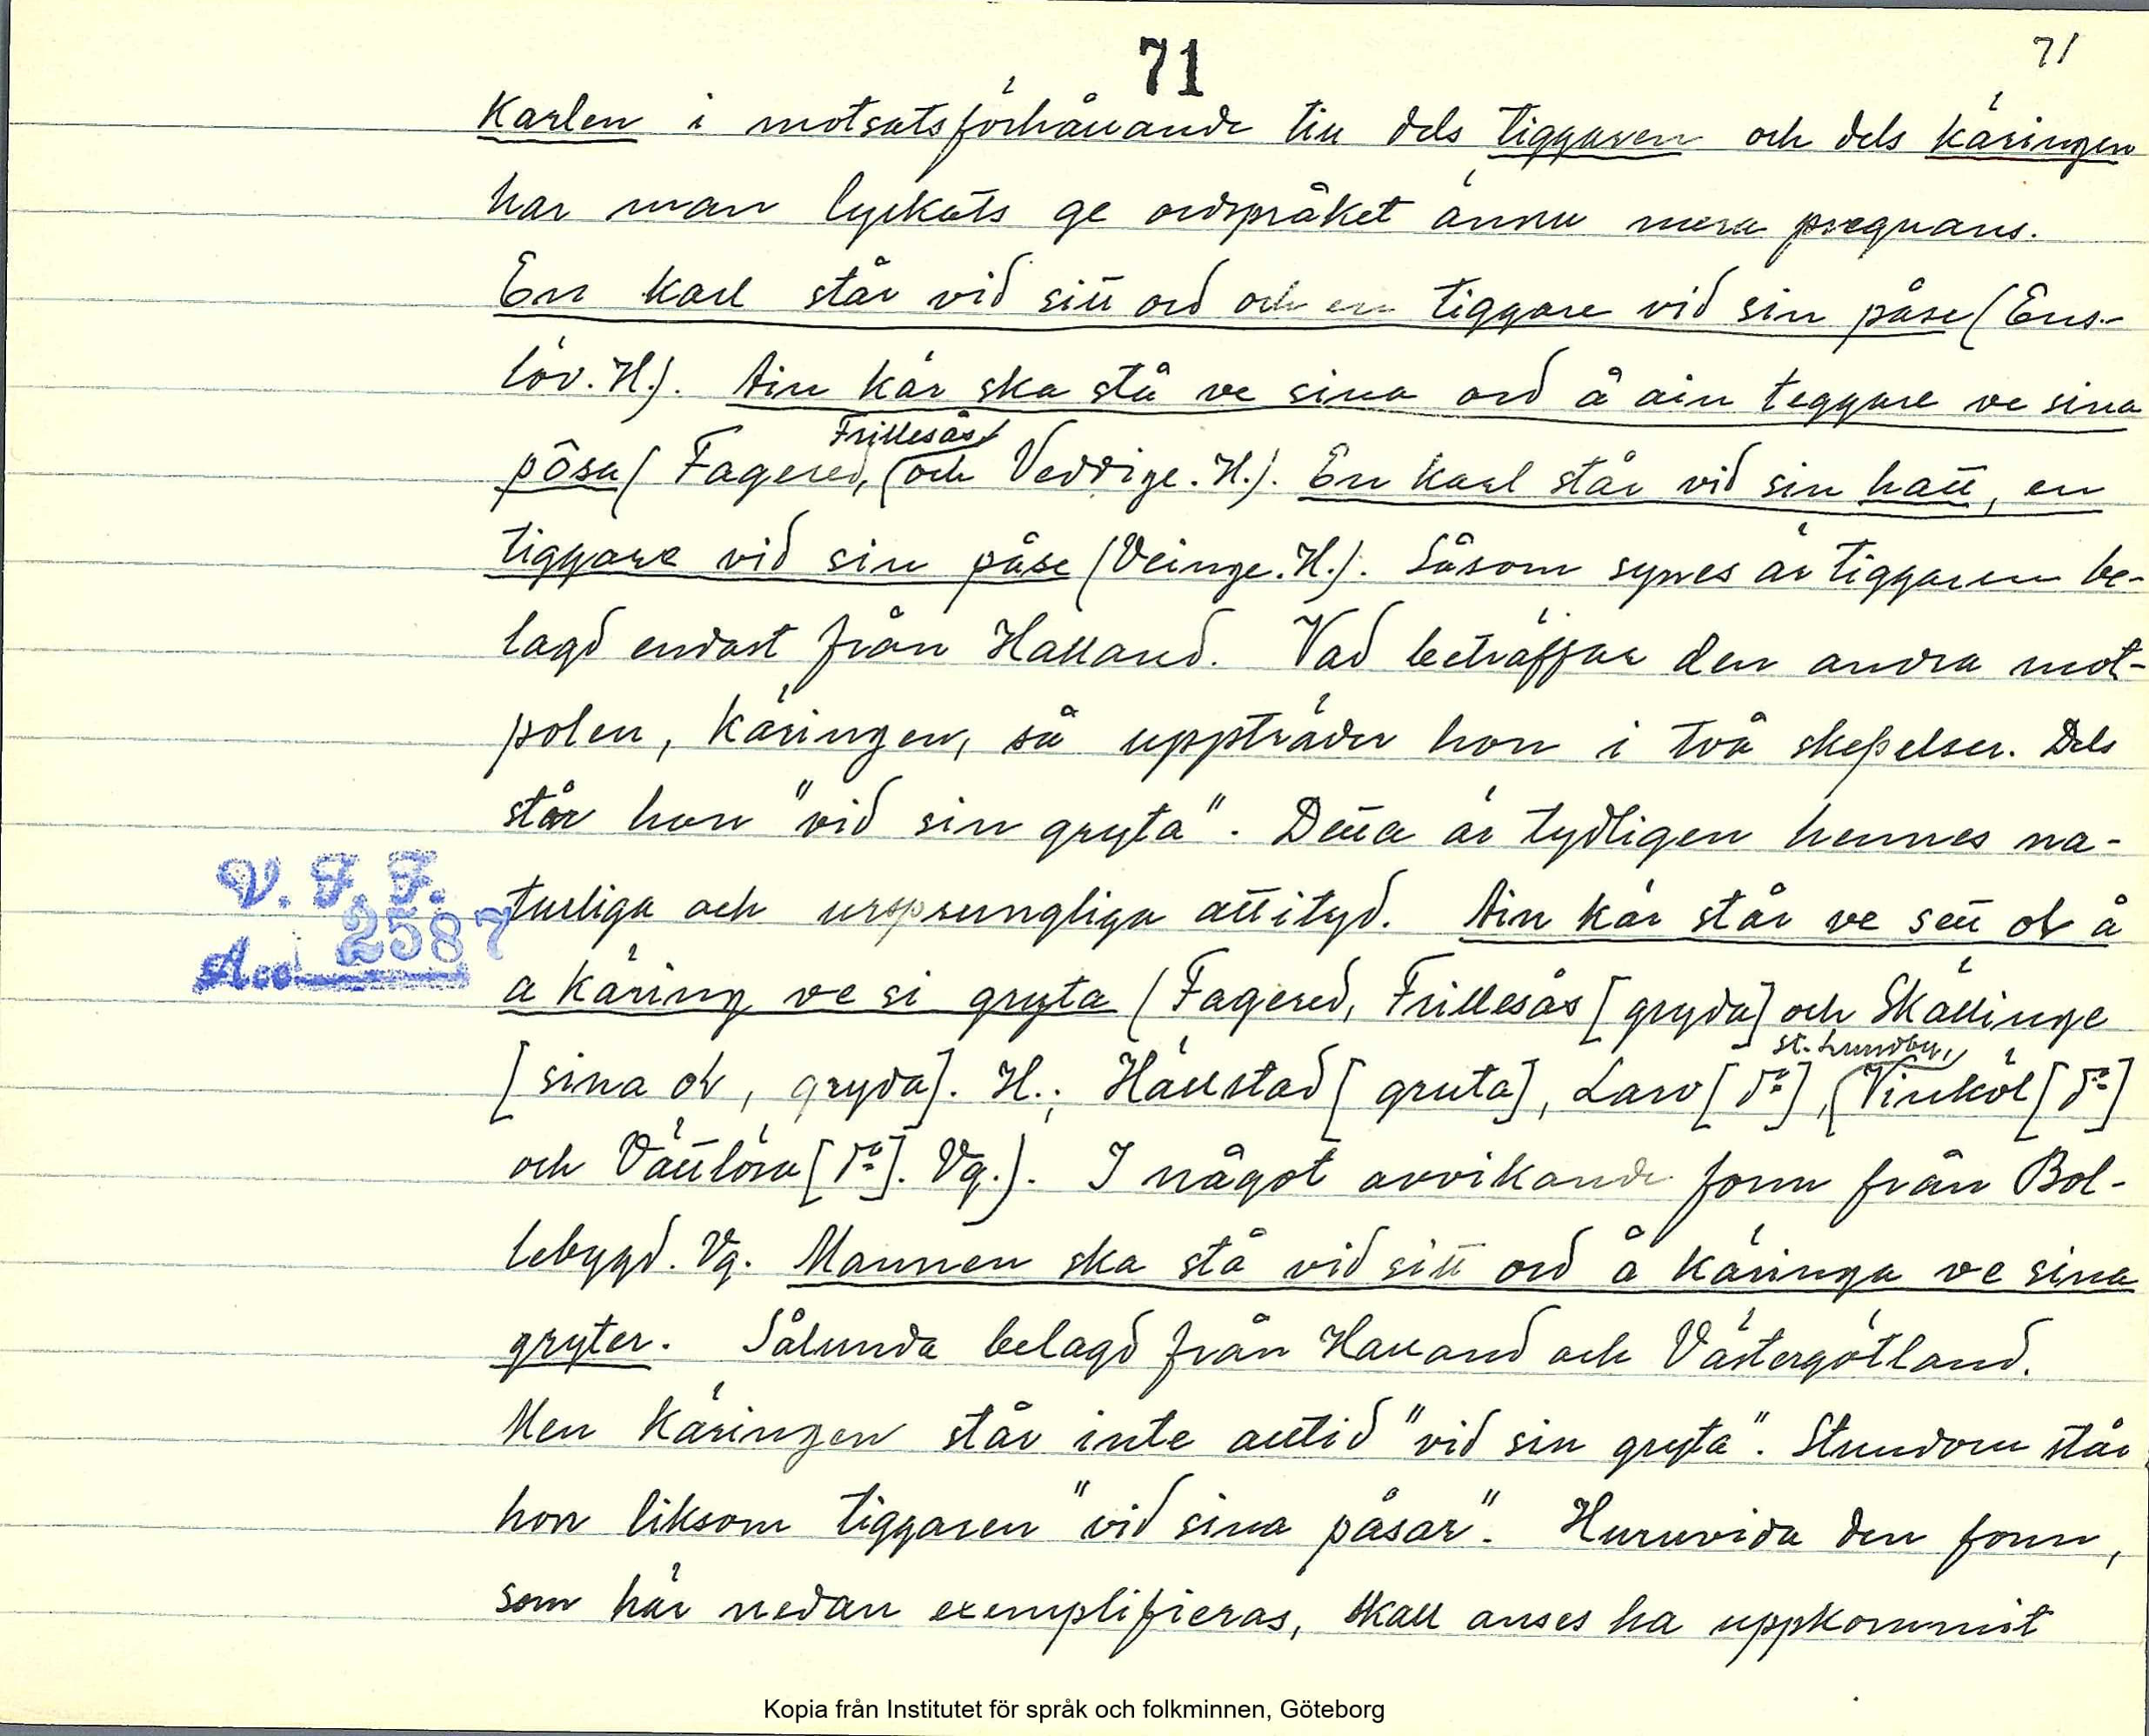 71
71
Karlen i motsatsförhållande till dels tiggaren och dels käringen
har man lyckats ge ordspråket ännu mera pregnans.
En karl står vid sitt ord och en tiggare vid sin påse (Ens-
löv. H.). Ain kär ska stå ve sina ord å ain teggare ve sina
Frillesås
påsa (Fagered, och Veddige. H.). En karl står vid sin hatt, en
tiggare vid sin påse (Veinge. H.). Såsom synes är tiggaren be-
lagd endast från Halland. Vad beträffar den andra mot-
polen, käringen, så uppträder hon i två skepelser. Dels
står hon "vid sin gryta". Detta är tydligen hennes na-
V. F. F.
turliga och ursprungliga attityd. Ain kär står ve sett ol å
Acc 2587
a käring ve si gryta (Fagered, Frillesås [gryda] och Skällinge
[sina ol, gryda]. H.; Hällstad [gruta], Larv [d:o], Vinköl [d:o]
St. Lundby,
och Vättlösa [d:o]. Vg.). I något avvikande form från Bol-
lebygd. Vg. Mannen ska stå vid sitt ord å käringa ve sina
gryter. Sålunda belagd från Halland och Västergötland.
Men käringen står inte alltid "vid sin gryta". Stundom står
hon liksom tiggaren "vid sina påsar". Huruvida den form,
som här nedan exemplifieras, skall anses ha uppkommit
Kopia från Institutet för språk och folkminnen, Göteborg